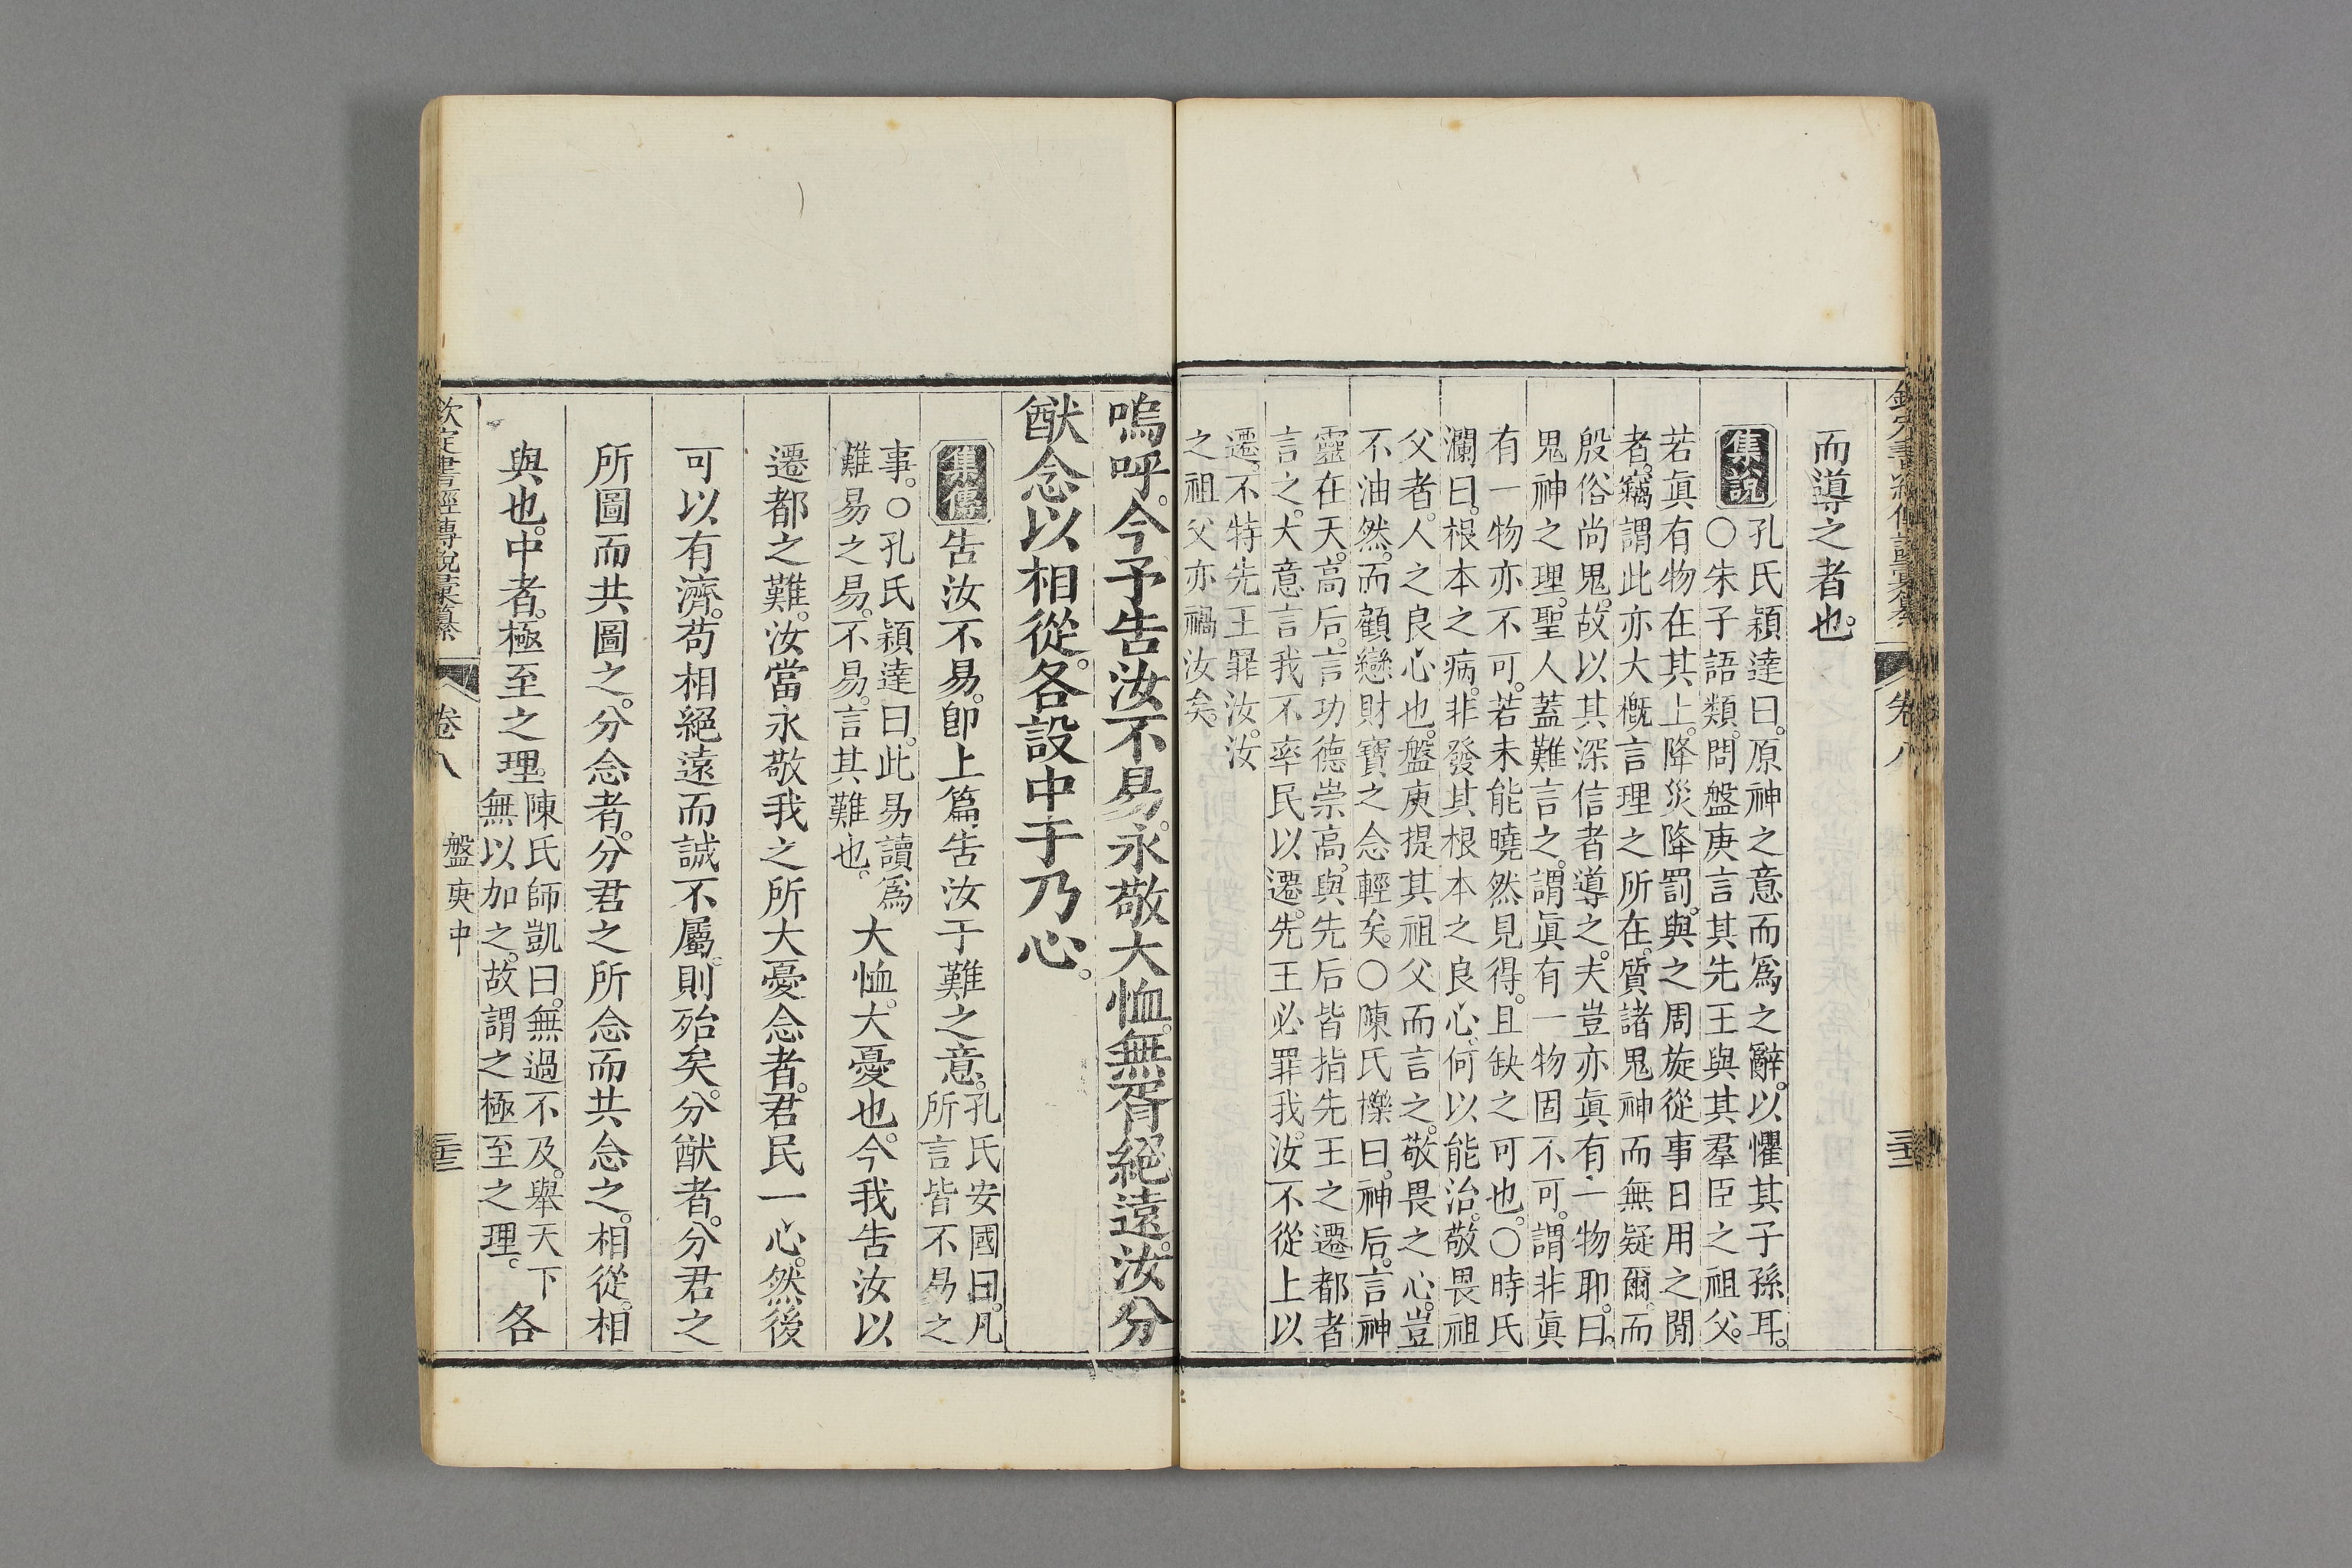 欽定書經傳說彙纂
卷八
而導之者也。
集說
孔氏穎達曰。原神之意而爲之辭。以懼其子孫耳。
○朱子語類。問盤庚言其先王與其羣臣之祖父。
若眞有物在其上。降災降罰。與之周旋從事日用之閒
者。竊謂此亦大槪言理之所在。質諸鬼神而無疑爾。而
殷俗尚鬼。故以其深信者導之。夫豈亦眞有一物耶。曰。
鬼神之理。聖人蓋難言之。謂眞有一物固不可。謂非眞
有一物亦不可。若未能曉然見得。且缺之可也。○時氏
瀾曰。根本之病。非發其根本之良心。何以能治。敬畏祖
父者。人之良心也。盤庚提其祖父而言之。敬畏之心。豈
不油然。而顧戀財寶之念輕矣。○陳氏櫟曰。神后。言神
靈在天。高后。言功德崇高。與先后皆指先王之遷都者
言之。大意言我不率民以遷。先王必罪我。汝不從上以
遷。不特先王罪汝。汝
之祖父亦禍汝矣。
嗚呼。今予告汝不易。永敬大恤。無胥絕遠。汝分
猷念以相從。各設中于乃心。
集傳
告汝不易。卽上篇告汝于難之意。
孔氏安國曰。凡
所言皆不易之
事。○孔氏穎達曰。此易讀爲
難易之易。不易。言其難也。
大恤。大憂也。今我告汝以
遷都之難。汝當永敬我之所大憂念者。君民一心。然後
可以有濟。苟相絕遠而誠不屬。則殆矣。分猷者。分君之
所圖而共圖之。分念者。分君之所念而共念之。相從。相
與也。中者。極至之理。
陳氏師凱曰。無過不及。舉天下
無以加之。故謂之極至之理。
各
欽定書經傳說彙纂
卷八
盤庚中